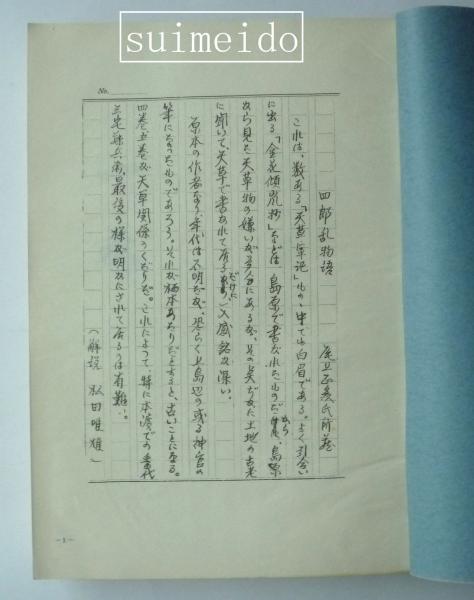 suimeido
No.
四郎乱物語
尾上正義氏所蔵
これは、数ある「天草軍記」ものゝ中でも白眉である。よく引合い
に出る「金花傾嵐抄」などは島原で書かれたものだから、島原
から見た天草物の嫌いが多分にあるが、その点だけに土地の古老
に聞いて、天草で書かれて居るだけに入感銘が深い。
原本の作者なり、年代は不明だが、恐らく上島辺の或る神官の
筆になったものであろう。それが栖本あたりだとすると、古いことになる。
四巻五巻が天草関係のくだりだ。これによって、特に本渡での番代
三宅藤兵衛、最後の様が明かにされて居るのは有難い。
(解説 松田唯雄)
-1-